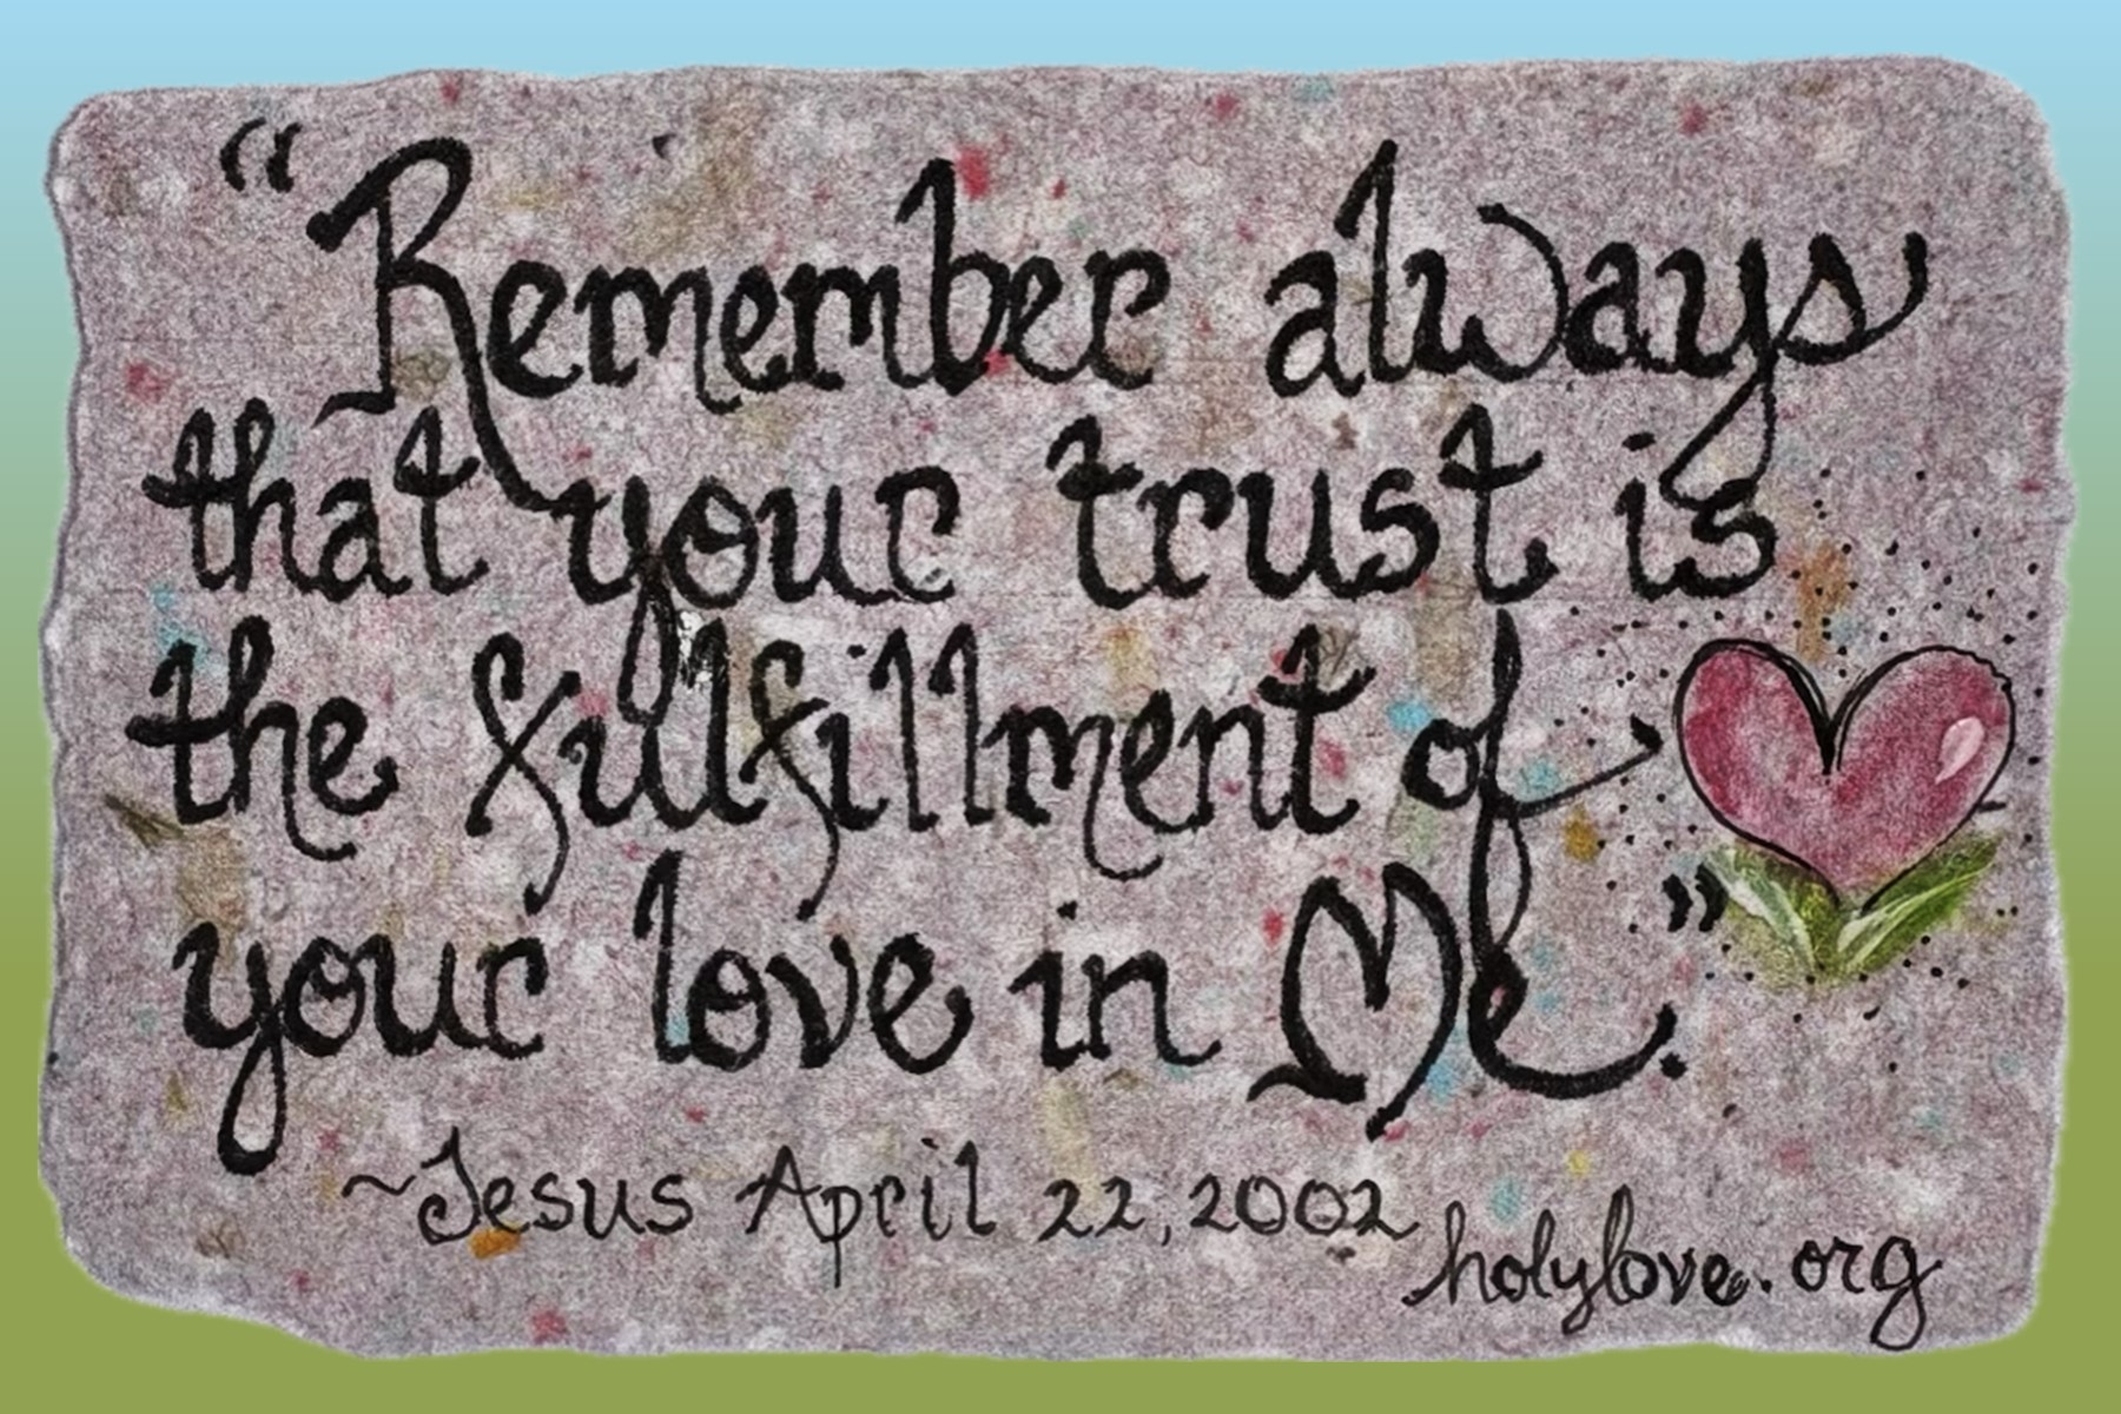 “Remember always
that your trust is
the fulfillment of
your love in Me.”
~Jesus April 22, 2002
holylove.org